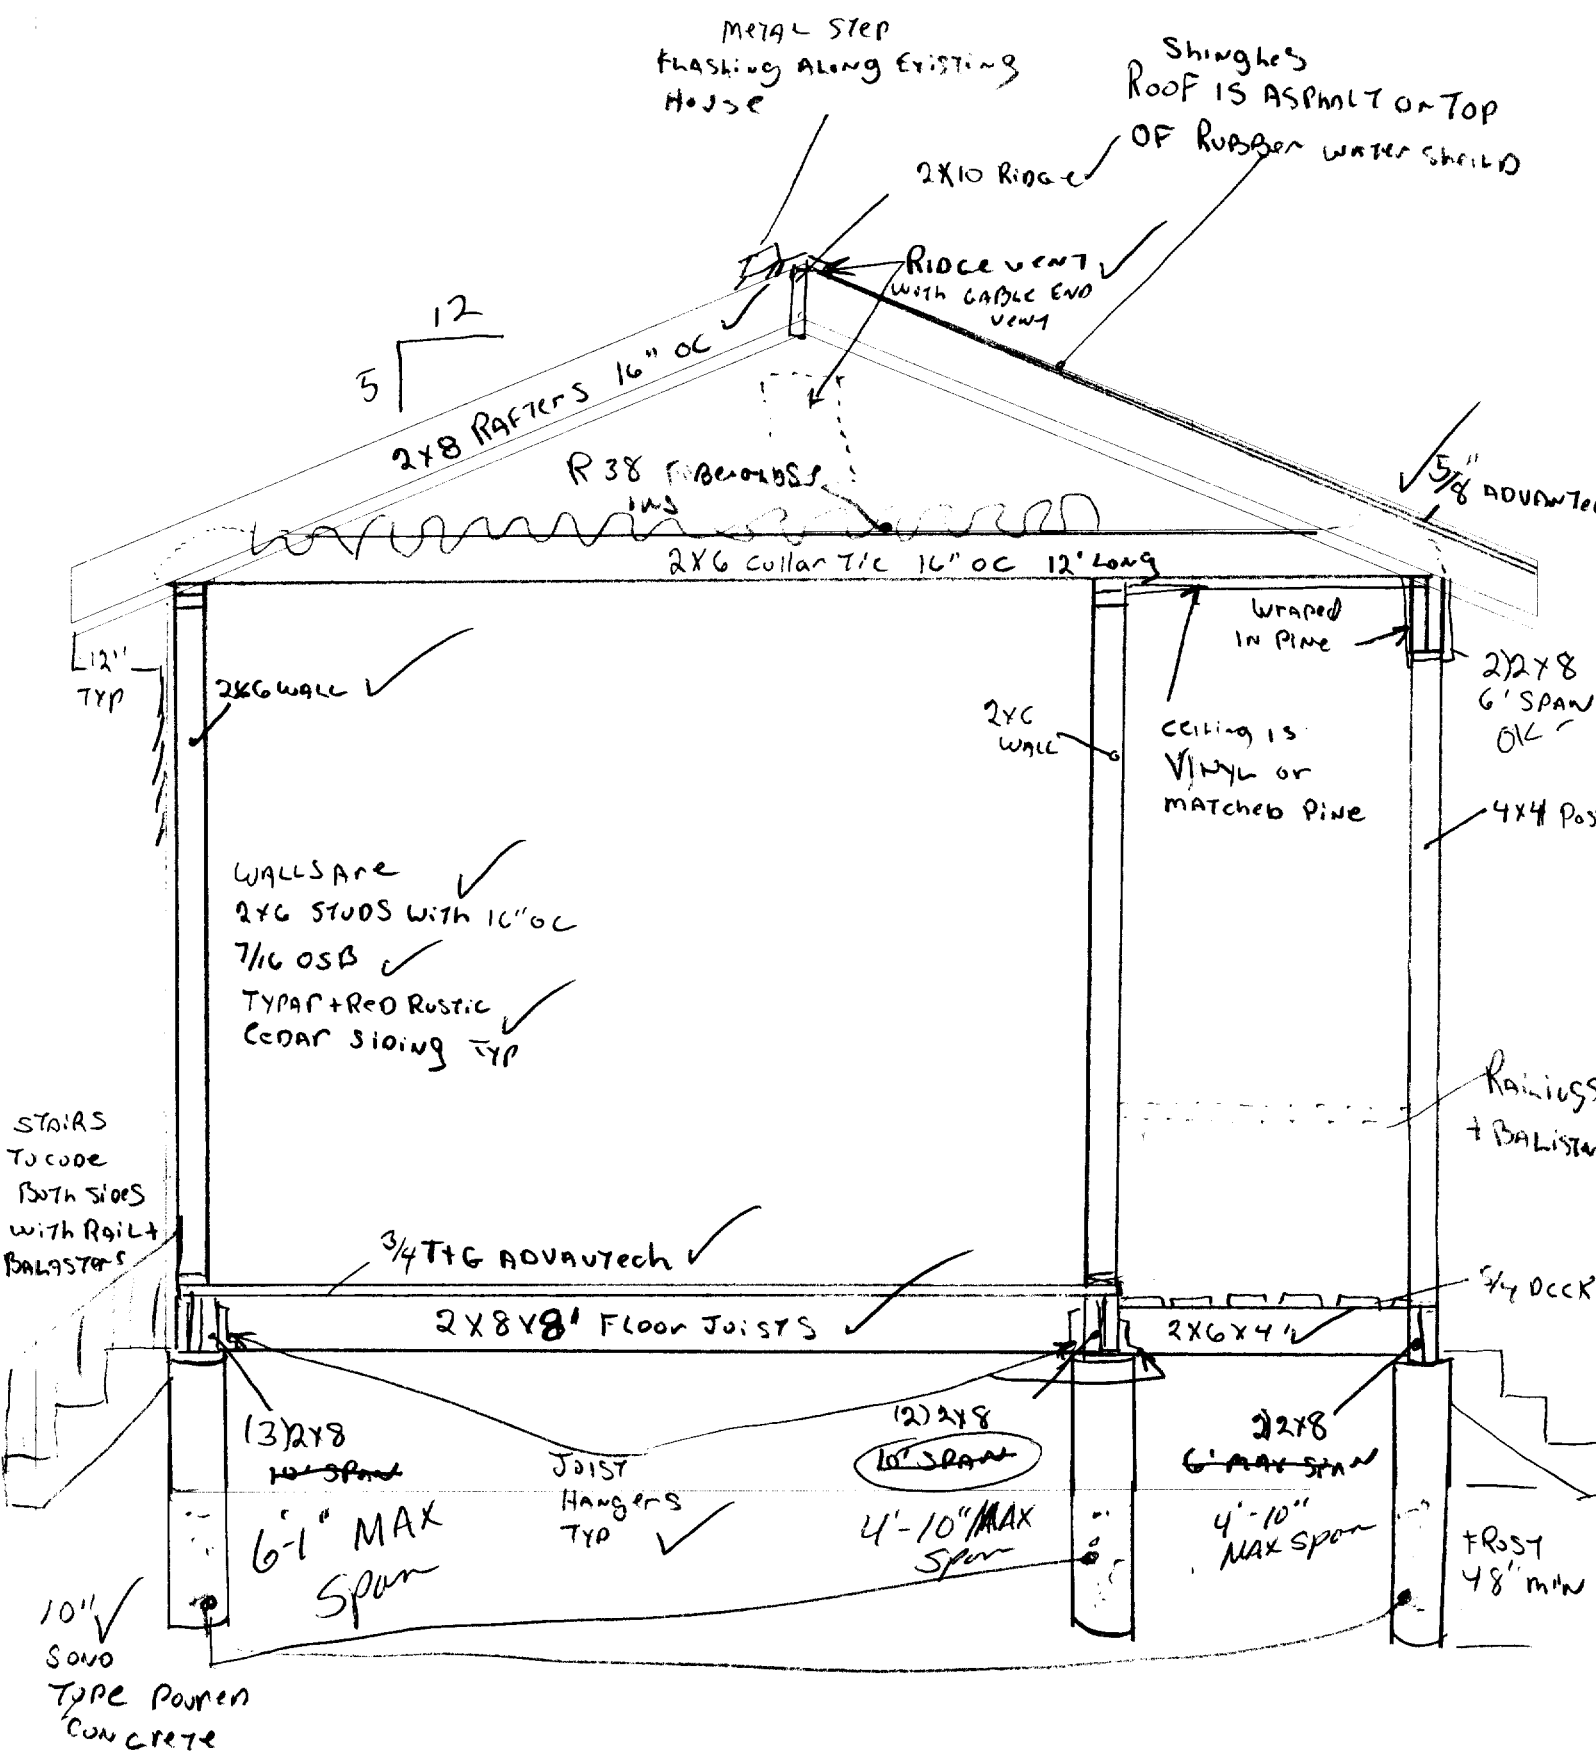 METAL STEP
FLASHING ALONG EXISTING
HOUSE
SHINGLES
ROOF IS ASPHALT ON TOP
OF RUBBER WATER SHEILD
2X10 RIDGE
RIDGE VENT
WITH GABLE END
VENT
12
5
2X8 RAFTERS 16" OC
R 38 FIBERGLASS
INS
5/8" ADVANTEC
2X6 COLLAR TIE 16" OC 12' LONG
WRAPED
IN PINE
12"
TYP
2X6 WALL
2)2X8
6' SPAN
OK
2X6
WALL
CEILING IS
VINYL OR
MATCHED PINE
4X4 POS
WALLS ARE
2X6 STUDS WITH 16" OC
7/16 OSB
TYPAR + RED RUSTIC
CEDAR SIDING TYP
RAILINGS
+ BALISTE
STAIRS
TO CODE
BOTH SIDES
WITH RAIL +
BALASTERS
3/4 T+G ADVANTECH
5/4 DECK
2X8X8' FLOOR JOISTS
2X6X4'
(3)2X8
10' SPAN
6'-1" MAX
Span
JOIST
HANGERS
TYP
(2)2X8
10' SPAN
4'-10" MAX
Span
2)2X8
6' MAX SPAN
4'-10"
MAX Span
FROST
48" MIN
10"
SONO
TYPE POURED
CONCRETE